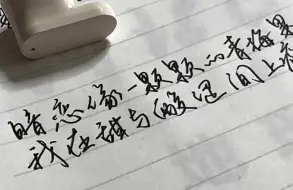 暗恋像一颗颗的青梅果
我在甜与酸涩间上